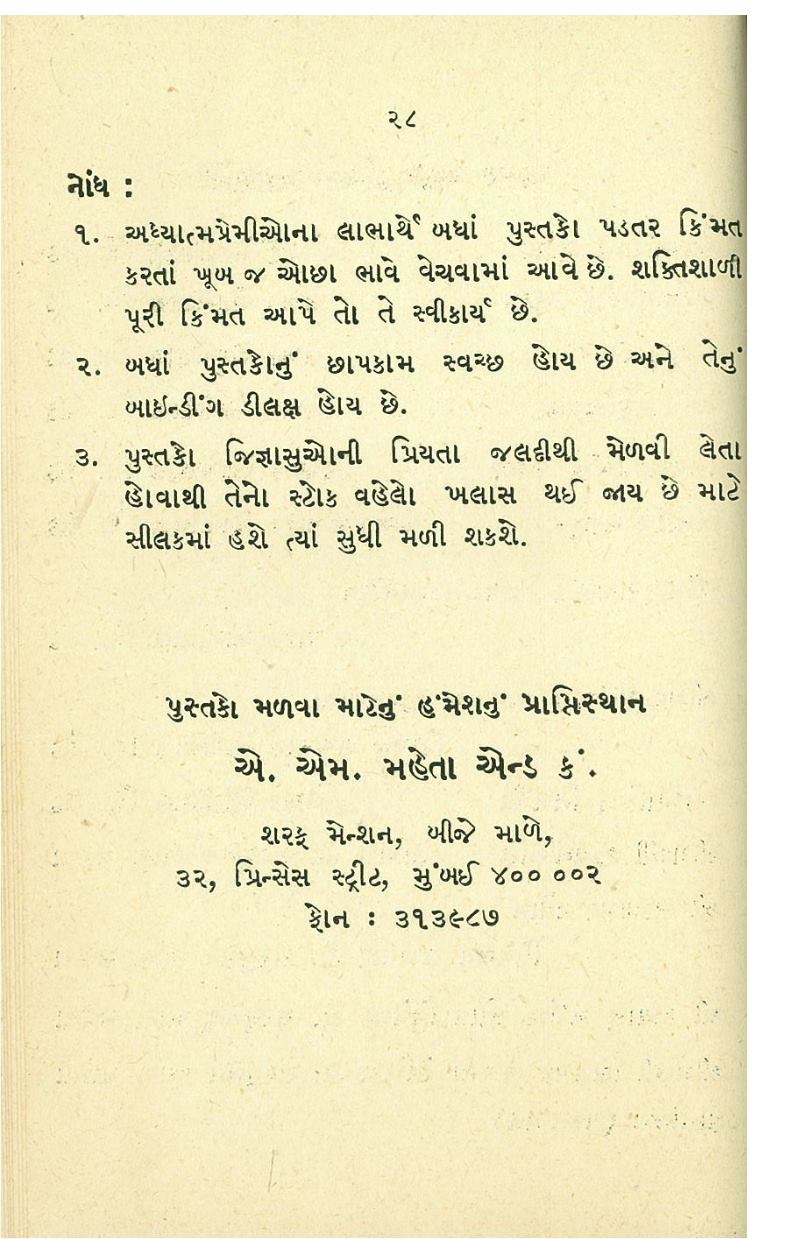 ૨૮
નોંધ :
૧. અધ્યાત્મપ્રેમીઓના લાભાર્થે બધાં પુસ્તકો પડતર કિંમત
કરતાં ખૂબ જ ઓછા ભાવે વેચવામાં આવે છે. શક્તિશાળી
પૂરી કિંમત આપે તો તે સ્વીકાર્ય છે.
૨. બધાં પુસ્તકોનું છાપકામ સ્વચ્છ હોય છે અને તેનું
બાઇન્ડીંગ ડીલક્ષ હોય છે.
૩. પુસ્તકો જિજ્ઞાસુઓની પ્રિયતા જલદીથી મેળવી લેતા
હોવાથી તેનો સ્ટોક વહેલો ખલાસ થઈ જાય છે માટે
સીલકમાં હશે ત્યાં સુધી મળી શકશે.
પુસ્તકો મળવા માટેનું હંમેશનું પ્રાપ્તિસ્થાન
એ. એમ. મહેતા એન્ડ કં.
શરફ મેન્શન, બીજે માળે,
૩૨, પ્રિન્સેસ સ્ટ્રીટ, મુંબઈ ૪૦૦ ૦૦૨
ફોન : ૩૧૩૯૮૭